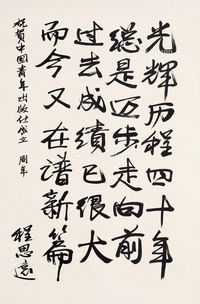 光辉历程四十年
总是迈步走向前
过去成绩已很大
而今又在谱新篇
祝贺中国青年出版社成立 周年
程思远